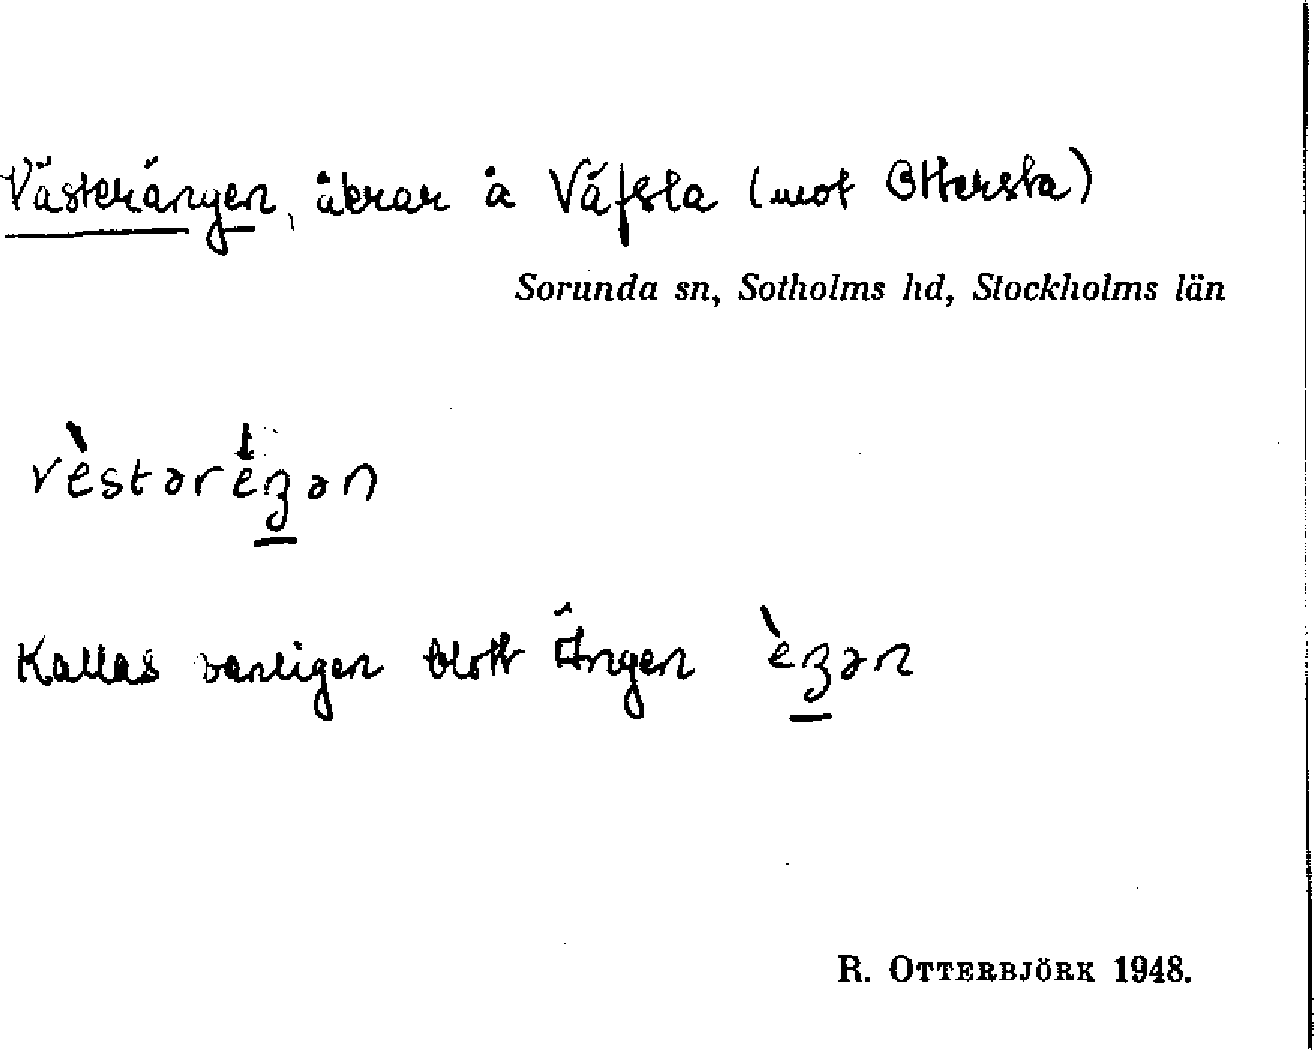 Västerängen, åkrar å Väfsla (mot Ottersta)
Sorunda sn, Sotholms hd, Stockholms län
vèstərèʒən
Kallas vanligen blott Ängen èʒən
R. OTTERBJÖRK 1948.